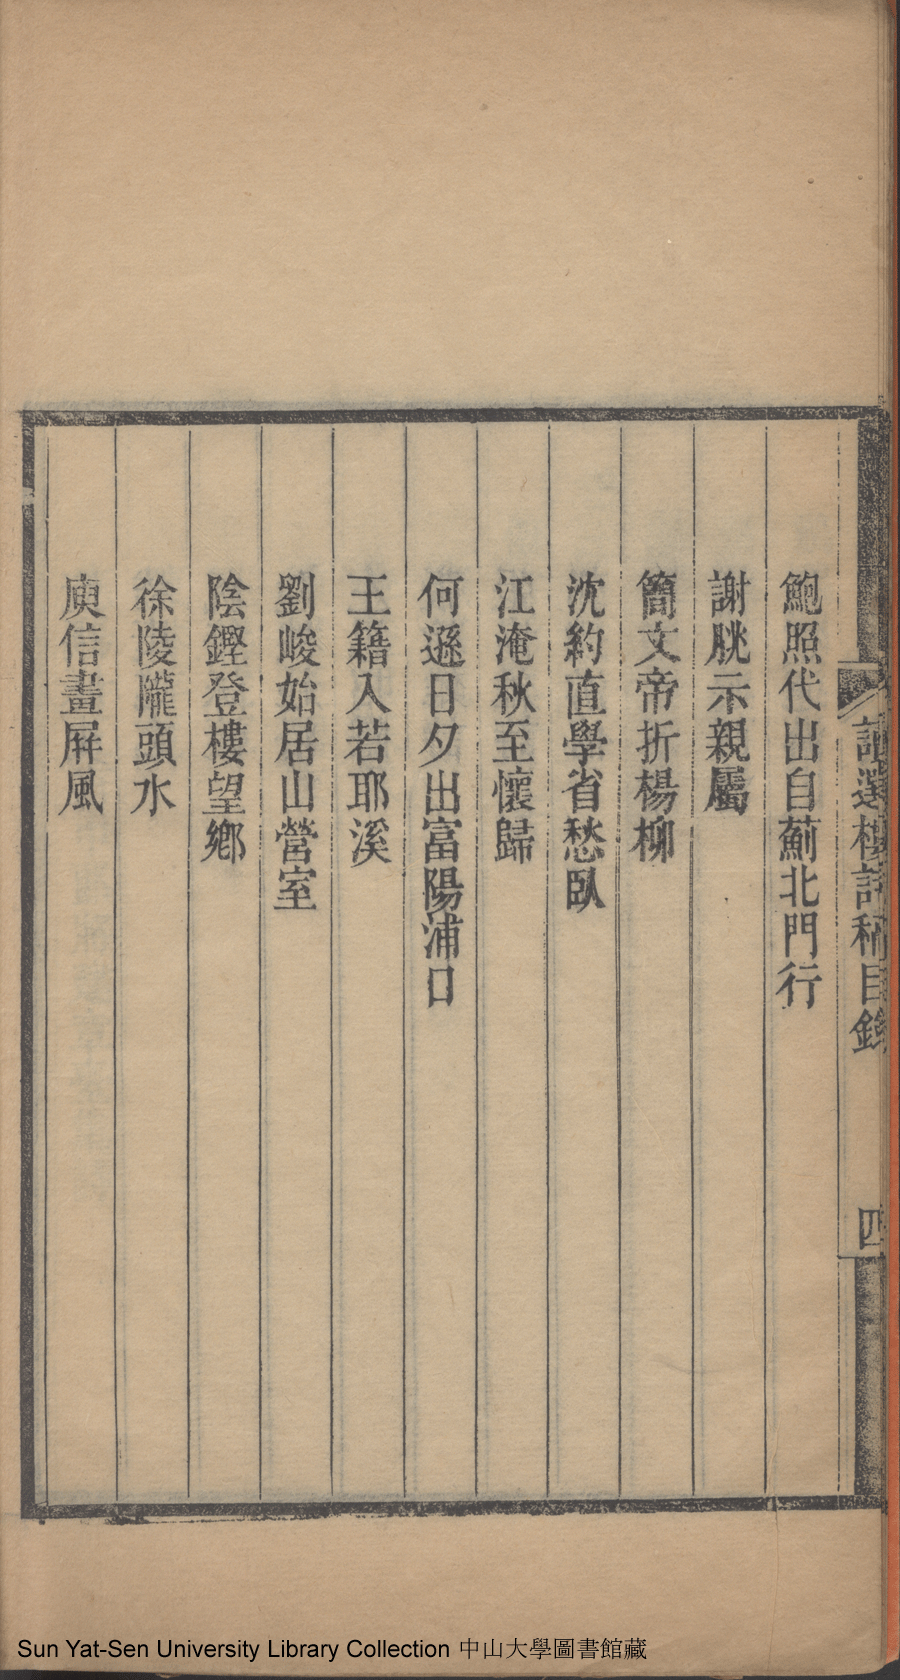 讀選樓詩稿目錄
四
鮑照代出自薊北門行
謝朓示親屬
簡文帝折楊柳
沈約直學省愁臥
江淹秋至懷歸
何遜日夕出富陽浦口
王籍入若耶溪
劉峻始居山營室
陰鏗登樓望鄉
徐陵隴頭水
庾信畫屏風
Sun Yat-Sen University Library Collection 中山大學圖書館藏